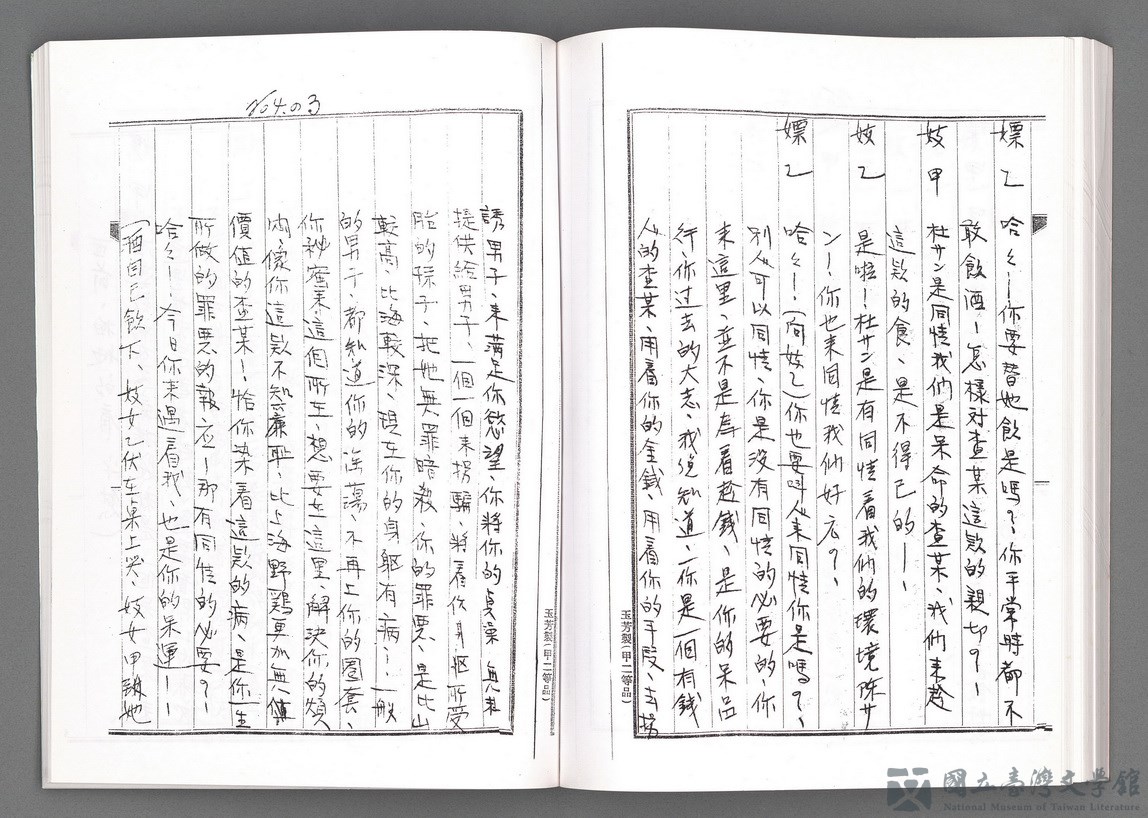 嫖乙 哈々——你要替她飲是嗎？、你平常時都不
敢飲酒——怎樣对查某這款的親切？——
妓甲 杜サン是同情我們是呆命的查某、我们来趁
這款的食、是不得已的——、
妓乙 是啦——杜サン是有同情着我们的環境陈サ
ン——、你也来同情我们好広？、
嫖乙 哈々——、(向妓乙)你也要叫人来同情你是嗎？、
別人可以同情、你是没有同情的必要的、你
来這里、並不是為着趁錢、是你的呆品
行、你过去的大志、我総知道、你是一個有錢
人的查某、用着你的金錢、用着你的手段、去拐
誘男子、来满足你慾望、你將你的貞操 無来
提供給男子、一個一個来拐騙、將着你身軀所受
胎的孩子、把她無罪暗殺、你的罪悪、是比山
較高、比海較深、現在你的身軀有病——、一般
的男子、都知道你的淫蕩、不再上你的圏套、
你秘蜜来這個所在、想要在這里、解決你的煩
悶、像你這款不知廉恥、比上海野鷄更加無
價值的查某——、恰你染着這款的病、是你一生
所做的罪悪的報应——那有同情的必要？——
哈々——、今日你来遇着我、也是你的呆運——
(酒自己飲下、妓女乙伏在桌上哭、妓女甲 她
玉芳製(甲二等品)
玉芳製(甲二等品)
國立臺灣文學館
National Museum of Taiwan Literature